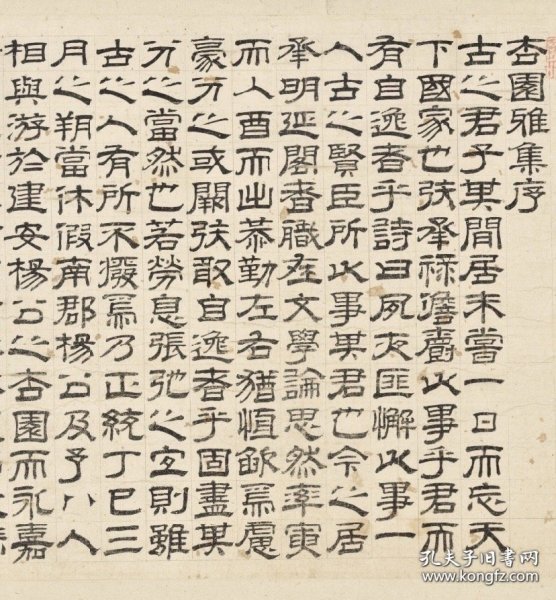 杏園雅集序
古之君子其閒居未嘗一日而忘天
下國家也矧承祿儋爵以事乎君而
有自逸者乎詩曰夙夜匪懈以事一
人古之賢臣所以事其君也今之居
承明延閣者職在文學論思然率寅
而入酉而出恭勤左右猶恒歉焉慮
豪分之或闕矧敢自逸者乎固盡其
分之當然也若勞息張弛之宜則雖
古之人有所不廢焉乃正統丁巳三
月之朔當休假南郡楊公及予八人
相與游於建安楊公之杏園而永嘉
孔夫子旧书网
kongfz.com